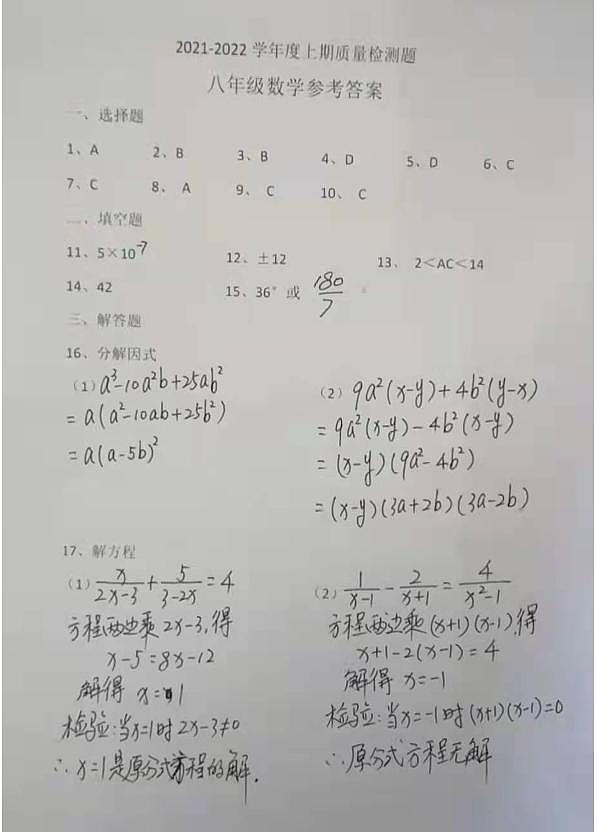 2021-2022 学年度上期质量检测题
八年级数学参考答案
一、选择题
1、A 2、B 3、B 4、D 5、D 6、C
7、C 8、A 9、C 10、C
二、填空题
11、5×10⁻⁷ 12、±12 13、2＜AC＜14
14、42 15、36° 或 180/7
三、解答题
16、分解因式
（1）a³-10a²b+25ab²
= a(a²-10ab+25b²)
= a(a-5b)²
（2）9a²(x-y)+4b²(y-x)
= 9a²(x-y)-4b²(x-y)
= (x-y)(9a²-4b²)
= (x-y)(3a+2b)(3a-2b)
17、解方程
（1）x/(2x-3) + 5/(3-2x) = 4
方程两边乘 2x-3,得
x-5=8x-12
解得 x=1
检验:当x=1时 2x-3≠0
∴ x=1是原分式方程的解.
（2）1/(x-1) - 2/(x+1) = 4/(x²-1)
方程两边乘(x+1)(x-1),得
x+1-2(x-1)=4
解得 x=-1
检验:当x=-1时 (x+1)(x-1)=0
∴原分式方程无解